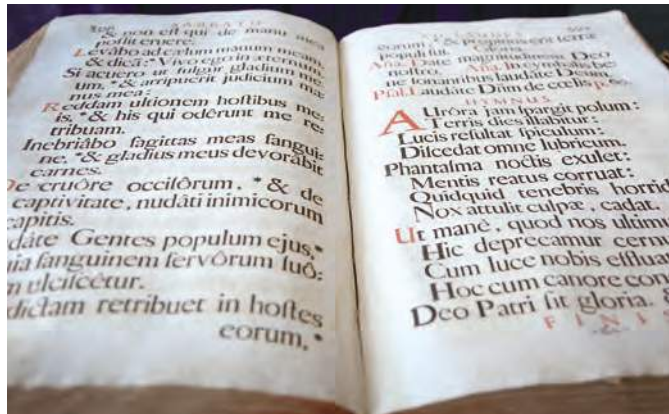 SABBATO
& non est qui de manu mea
possit eruere.
Levábo ad cælum manum meam,
& dicā: * Vivo ego in æternum.
Si acuero ut fulgur gladium me-
um, * & arripuerit judicium ma-
nus mea:
Reddam ultionem hostibus me-
is, * & his qui odérunt me re-
tribuam.
Inebriábo sagittas meas sangui-
ne, * & gladius meus devorábit
carnes.
De cruôre occisôrum, * & de
captivitate, nudáti inimicorum
capitis.
dáte Gentes populum ejus, *
uia sanguinem servôrum suô-
m ulciscétur.
dictam retribuet in hostes
eorum, *
AD LAUDES
eorum, * & propitius erit terræ
populi sui. Gloria.
Ana. Date magnitudinem Deo
nostro.
ne tonantibus laudáte Deum.
Psal. Laudáte Dñm de cœlis
HYMNUS
AUrôra jam spargit polum:
Terris dies illabitur:
Lucis resultat spiculum:
Discedat omne lubricum.
Phantasma noctis exulet:
Mentis reatus corruat:
Quidquid tenebris horri
Nox attulit culpæ, cadat.
Ut mané, quod nos ultim
Hic deprecamur cern
Cum luce nobis effluat
Hoc cum canore con
Deo Patri sit gloria.
FINI